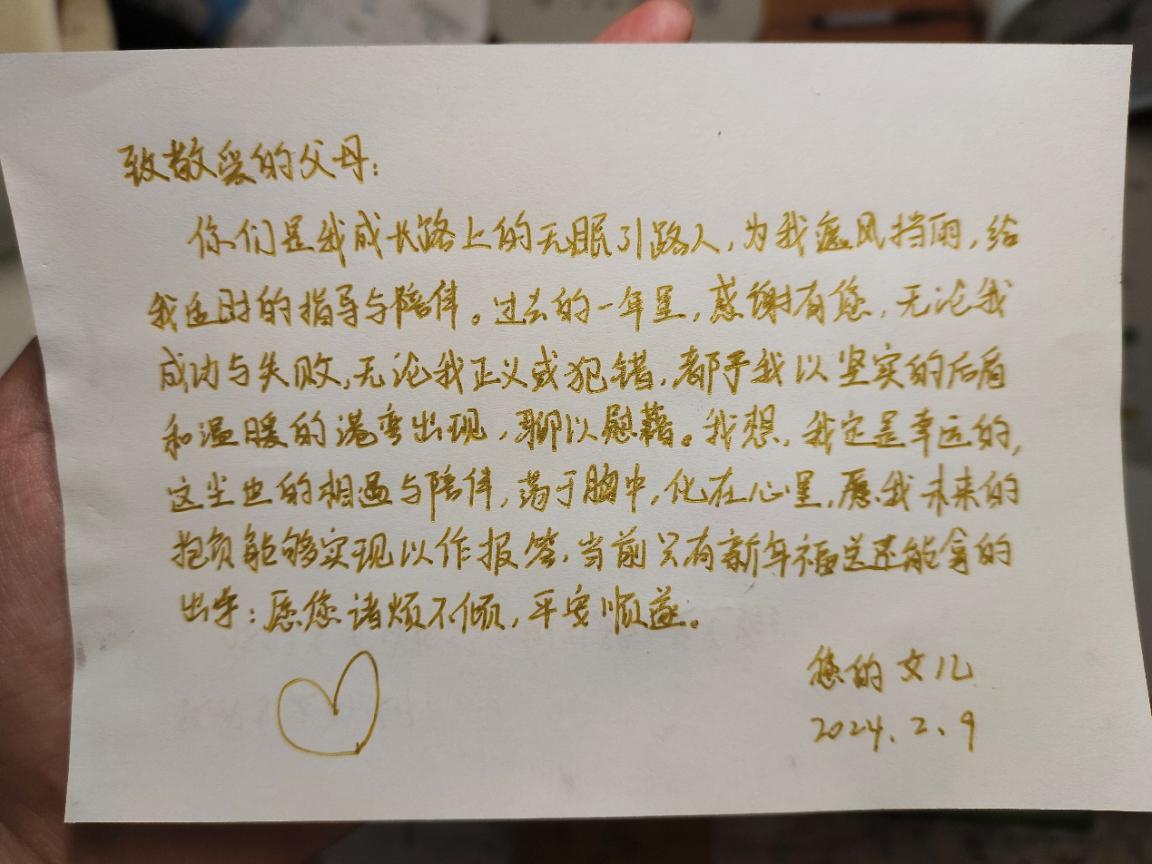 致敬爱的父母：
你们是我成长路上的无眠引路人，为我遮风挡雨，给
我适时的指导与陪伴。过去的一年里，感谢有您，无论我
成功与失败，无论我正义或犯错，都予我以坚实的后盾
和温暖的港湾出现，聊以慰藉。我想，我定是幸运的，
这尘世的相遇与陪伴，荡于胸中，化在心里，愿我未来的
抱负能够实现以作报答，当前只有新年福送还能拿的
出手：愿您诸烦不倾，平安顺遂。
您的女儿
2024.2.9